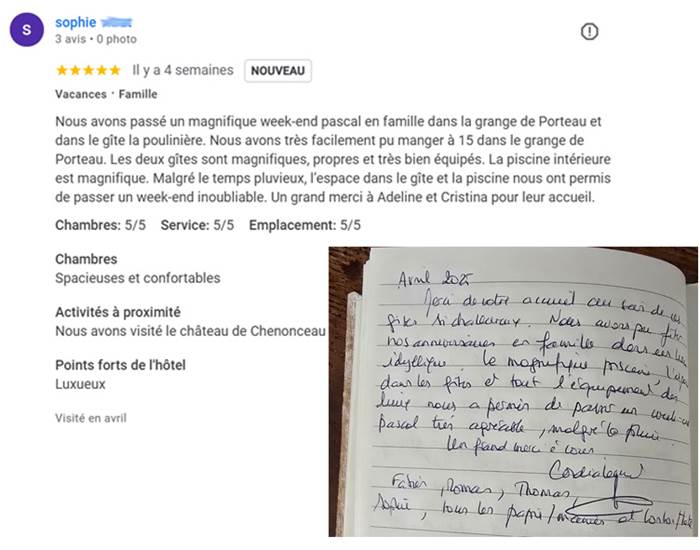 S
sophie
3 avis • 0 photo
Il y a 4 semaines NOUVEAU
Vacances • Famille
Nous avons passé un magnifique week-end pascal en famille dans la grange de Porteau et
dans le gîte la poulinière. Nous avons très facilement pu manger à 15 dans le grange de
Porteau. Les deux gîtes sont magnifiques, propres et très bien équipés. La piscine intérieure
est magnifique. Malgré le temps pluvieux, l'espace dans le gîte et la piscine nous ont permis
de passer un week-end inoubliable. Un grand merci à Adeline et Cristina pour leur accueil.
Chambres: 5/5 Service: 5/5 Emplacement: 5/5
Chambres
Spacieuses et confortables
Activités à proximité
Nous avons visité le château de Chenonceau
Points forts de l'hôtel
Luxueux
Visité en avril
Avril 2025
Merci de votre accueil au sein de
gîtes si chaleureux. Nous avons pu fêter
nos anniversaires en famille dans un lieu
idyllique. Le magnifique piscine, l'
dans les gîtes et tout l'équipement de
luxe nous a permis de passer un week-end
pascal très agréable, malgré la pluie.
Un grand merci à vous
Cordialement
Fabien, Romain, Thomas,
Sophie, tous les papis/mamies et